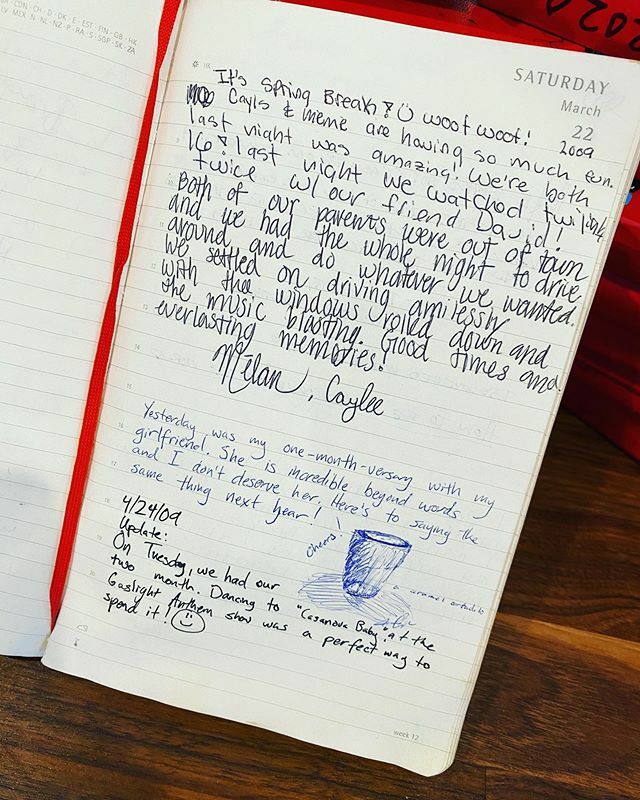 CDN · CH · D · DK · E · EST · FIN · GB · HK
LV · MEX · N · NL · NZ · P · RA · S · SGP · SK · ZA
2020
SATURDAY
March
22
2009
HK
It's spring Break! woot woot!
Cayls & meme are having so much fun.
last night was amazing. We're both
16! last night we watched twilight
twice w/ our friend David!
Both of our parents were out of town
and we had the whole night to drive
around and do whatever we wanted.
We settled on driving aimlessly
with the windows rolled down and
the music blasting. Good times and
everlasting memories!
Melan, Caylee
Yesterday was my one-month-versary with my
girlfriend. She is incredible beyond words
and I don't deserve her. Here's to saying the
same thing next year!
cheers!
4/24/09
Update:
On Tuesday, we had our
two month. Dancing to "Casanova Baby" at the
Gaslight Anthem show was a perfect way to
spend it!
week 12